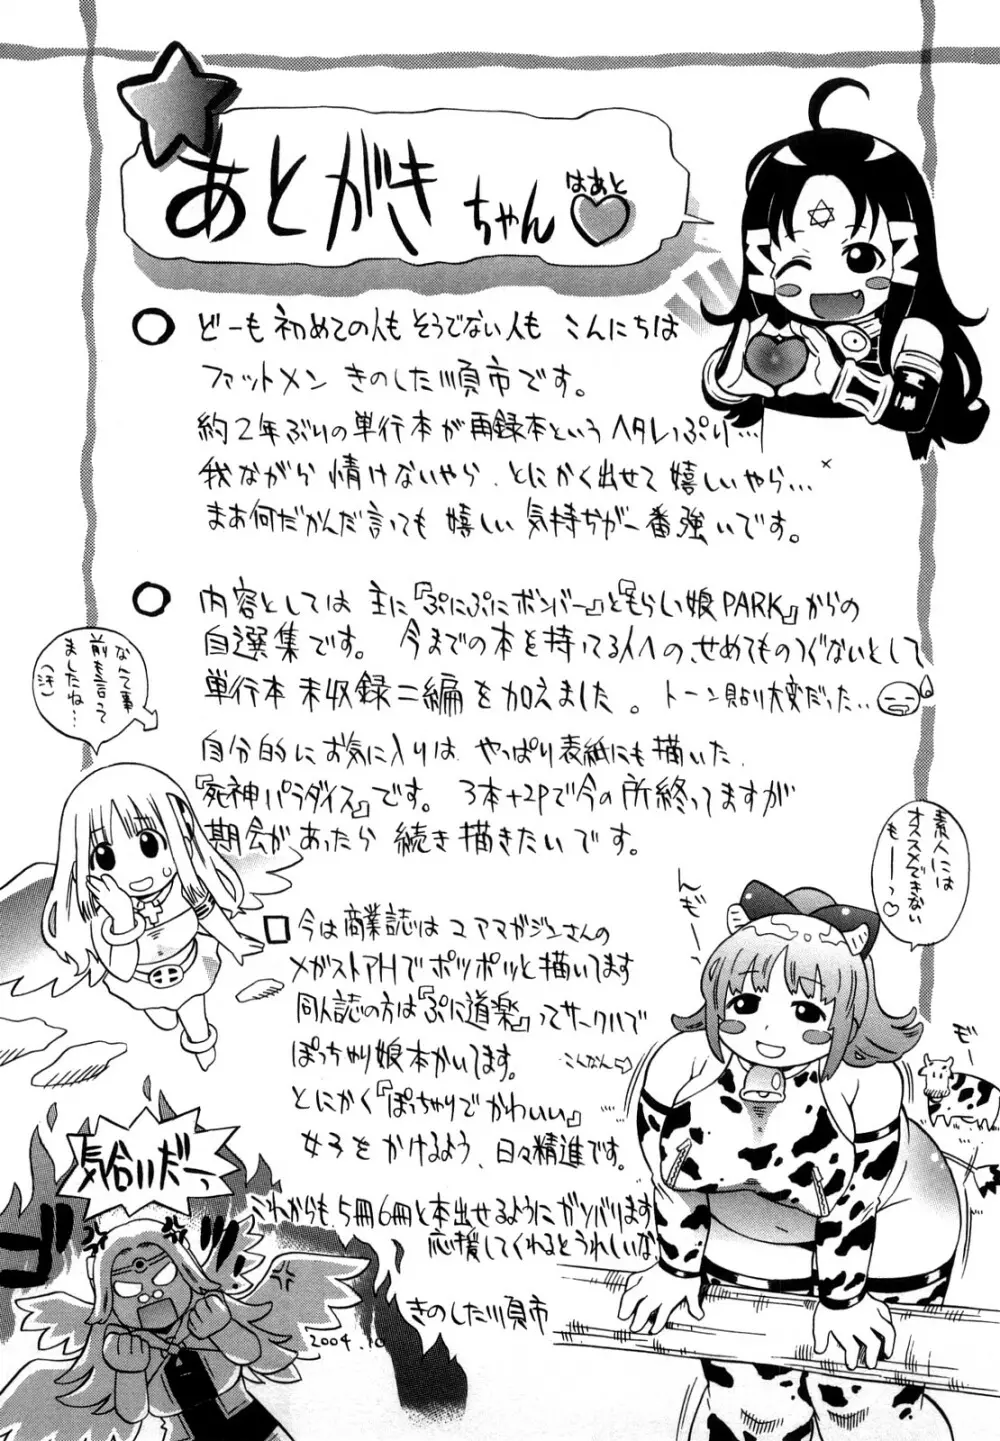 あとがきちゃん
はあと
どーも 初めての人も そうでない人も こんにちは
ファットメン きのした順市です。
約2年ぶりの単行本が再録本というヘタレっぷり…
我ながら 情けないやら、とにかく出せて 嬉しいやら…
まあ何だかんだ言っても 嬉しい 気持ちが一番強いです。
内容としては 主に『ぷにぷにボンバー』と『もらい娘PARK』からの
自選集です。 今までの本を持ってる人への、せめてものつぐないとして
単行本未収録二編を加えました。 トーン貼り大変だった…
なんて事
前も言って
ましたね…
(汗)
自分的にお気に入りは やっぱり表紙にも描いた
『死神パラダイス』です。 3本+2Pで今の所終ってますが
期会があったら 続き描きたいです。
素人には
オススメできない
もーーっ♡
んもぎー
今は商業誌はコアマガジンさんの
メガストアHでポツポツと描いてます
同人誌の方は『ぷに道楽』ってサークルで
ぽっちゃり娘本かいてます。
こんなんら
もぎー
とにかく『ぽっちゃりでかわいい』
女子をかけるよう、日々精進です。
気合いだーっ
これからも 5冊6冊と本出せるようにガンバリます
応援してくれるとうれしいな。
きのした順市
2004.10